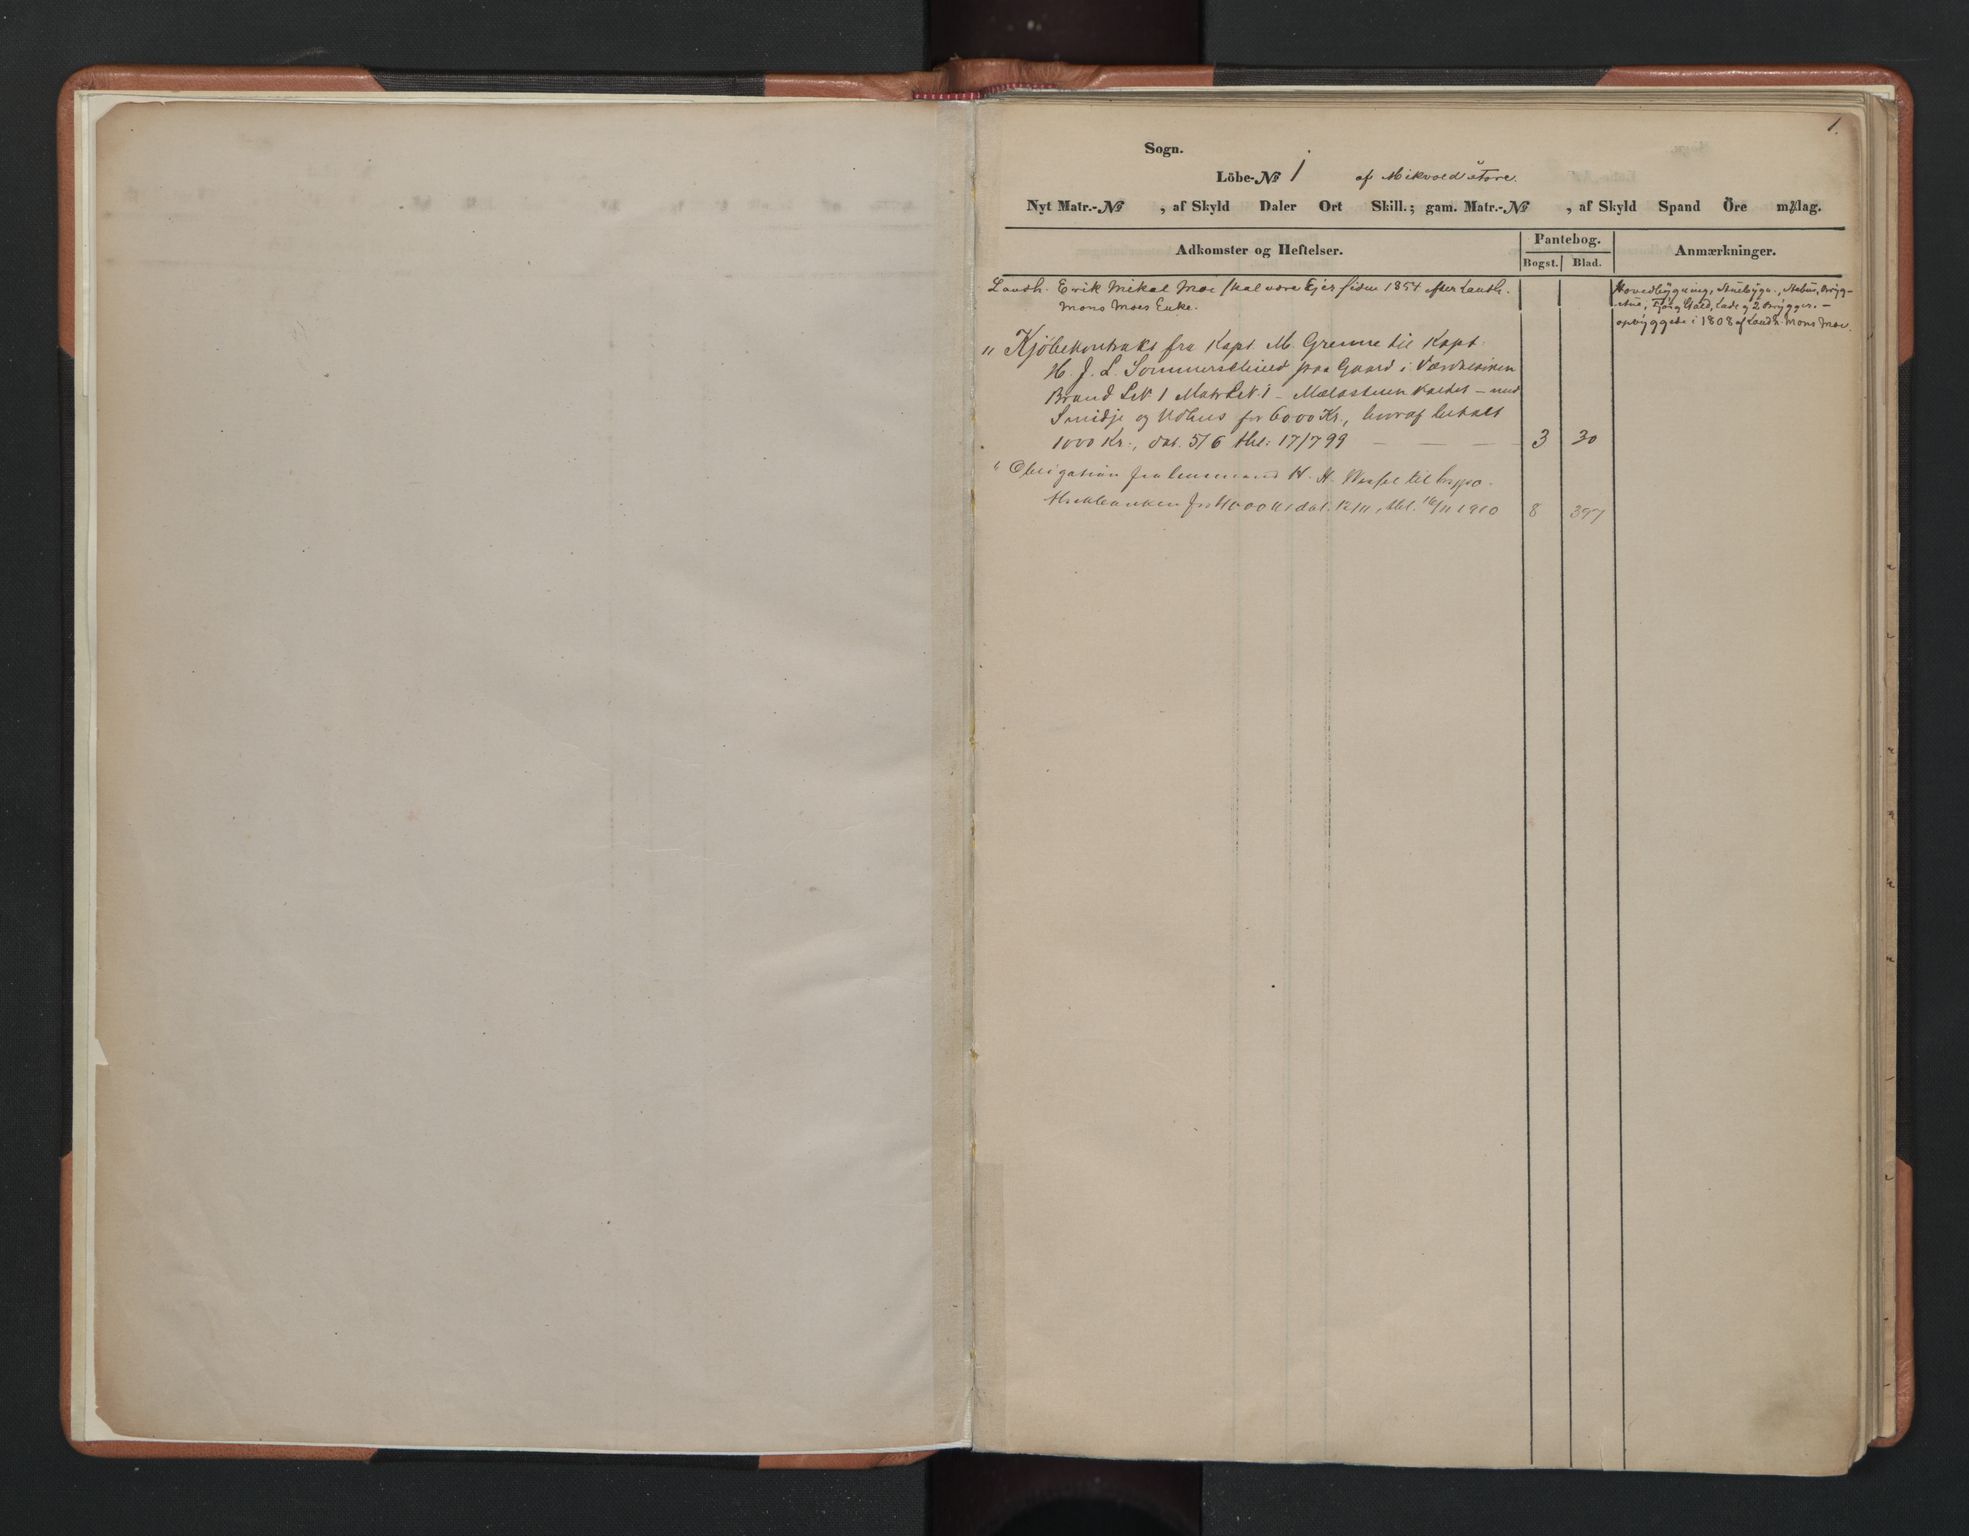 1.
Sogn.
Löbe-№ 1 af Mikvold store.
Nyt Matr.-№ , af Skyld Daler Ort Skill.; gam. Matr.-№ , af Skyld Spand Öre m/lag.
Adkomster og Heftelser.
Pantebog.
Bogst. Blad.
Anmærkninger.
Landh. Erik Mikal Moe skal være Ejer siden 1854 efter Landh.
Mons Moes Enke.
Hovedbygning, Stuebygn., Stabur, Bryg-
stue, Lade og 2 Brygger. —
opbyggede i 1808 af Landh. Mons Moe.
" Kjöbekontrakt fra Kapt. M. Grenne til Kapt.
H. J. L. Sommerschield paa Gaard i
Brand LN 1 Matr LN 1 – kaldet – med
Smidje og Udhus for 6000 Kr., hvoraf betalt
1000 Kr., dat. 5/6 thl: 17/7 99 — — — 3 30
" Obligation fra lensmand H. H. til hypo-
thekbanken for dat. thl. 16/11 1910 8 397